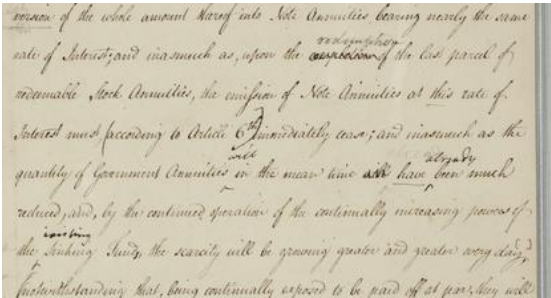 version of the whole amount thereof into Note Annuities bearing nearly the same
redemption
rate of Interest; and inasmuch as, upon the of the last parcel of
redeemable Stock Annuities, the emission of Note Annuities at this rate of
Interest must (according to Article 6th) immediately cease; and inasmuch as the
will already
quantity of Government Annuities in the mean time have been much
reduced, and, by the continued operation of the continually increasing powers of
existing
the Sinking Fund, the scarcity will be growing greater and greater every day,
(notwithstanding that, being continually exposed to be paid off at par, they will